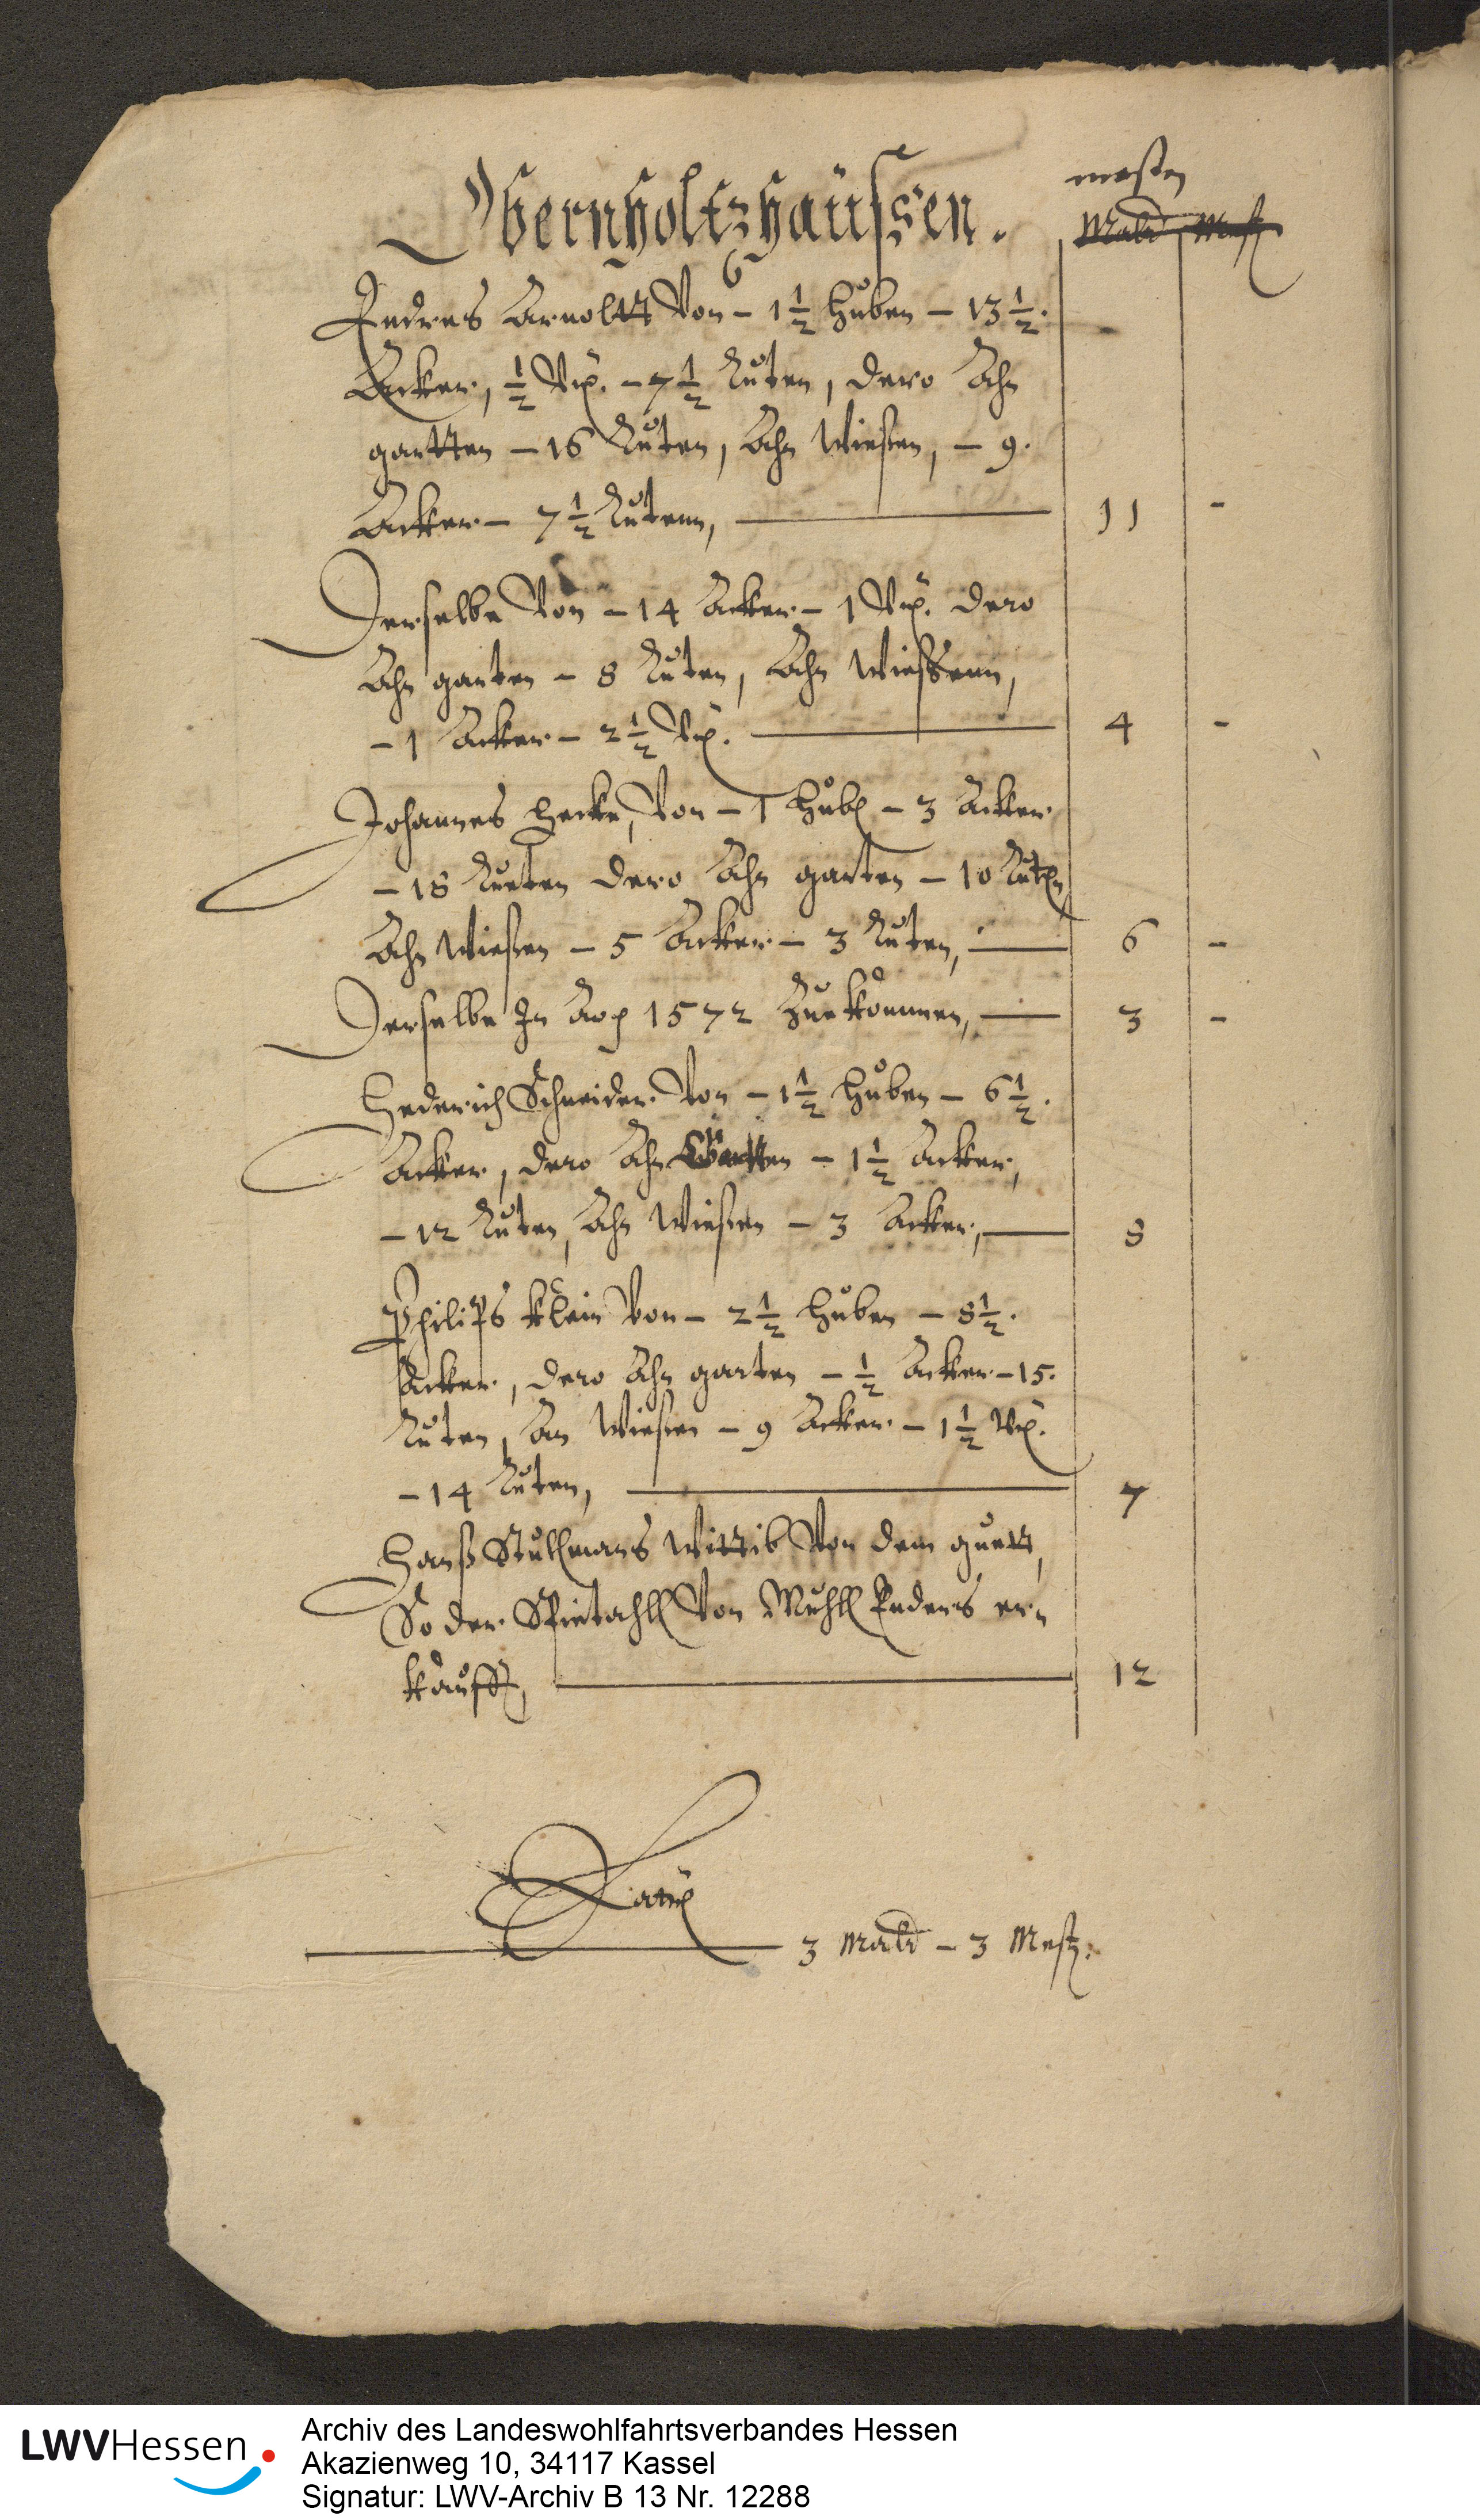 Obernholtzhaüssen.
mesten
Mald Mest
Endres Arnoltt Von – 1½ Huben – 13½.
Acker, ½ – 7½ Ruten, dero Ahn
gartten – 16 Ruten, Ahn Wiesen, – 9.
Acker – 7½ Rutenn, 11 –
Derselbe Von – 14 Acker – 1 dero
Ahn garten – 8 Ruten, Ahn Wiessenn,
– 1 Acker – 2½ 4 –
Johannes Hecke, Von – 1 Hube – 3 Acker
– 18 Rueten dero Ahn garten – 10 Ruten
Ahn Wiesen – 5 Acker – 3 Ruten, 6 –
Derselbe In 1572 Zue kommen, 3 –
Hederich Schneider Von – 1½ Huben – 6½.
Acker, dero Ahn Gärtten – 1½ Acker,
– 12 Ruten, Ahn Wiesen – 3 Acker, 8
Philips Klein Von – 2½ Huben – 8½.
Acker, dero Ahn garten – ½ Acker – 15.
Ruten, An Wiesen – 9 Acker – 1½
– 14 Ruten, 7
Hanß Wittib Von dem guett,
So der Spietahll Von Muhll Enders er-
kaufft, 12
Latus
3 Mald – 3 Mest.
LWVHessen
Archiv des Landeswohlfahrtsverbandes Hessen
Akazienweg 10, 34117 Kassel
Signatur: LWV-Archiv B 13 Nr. 12288